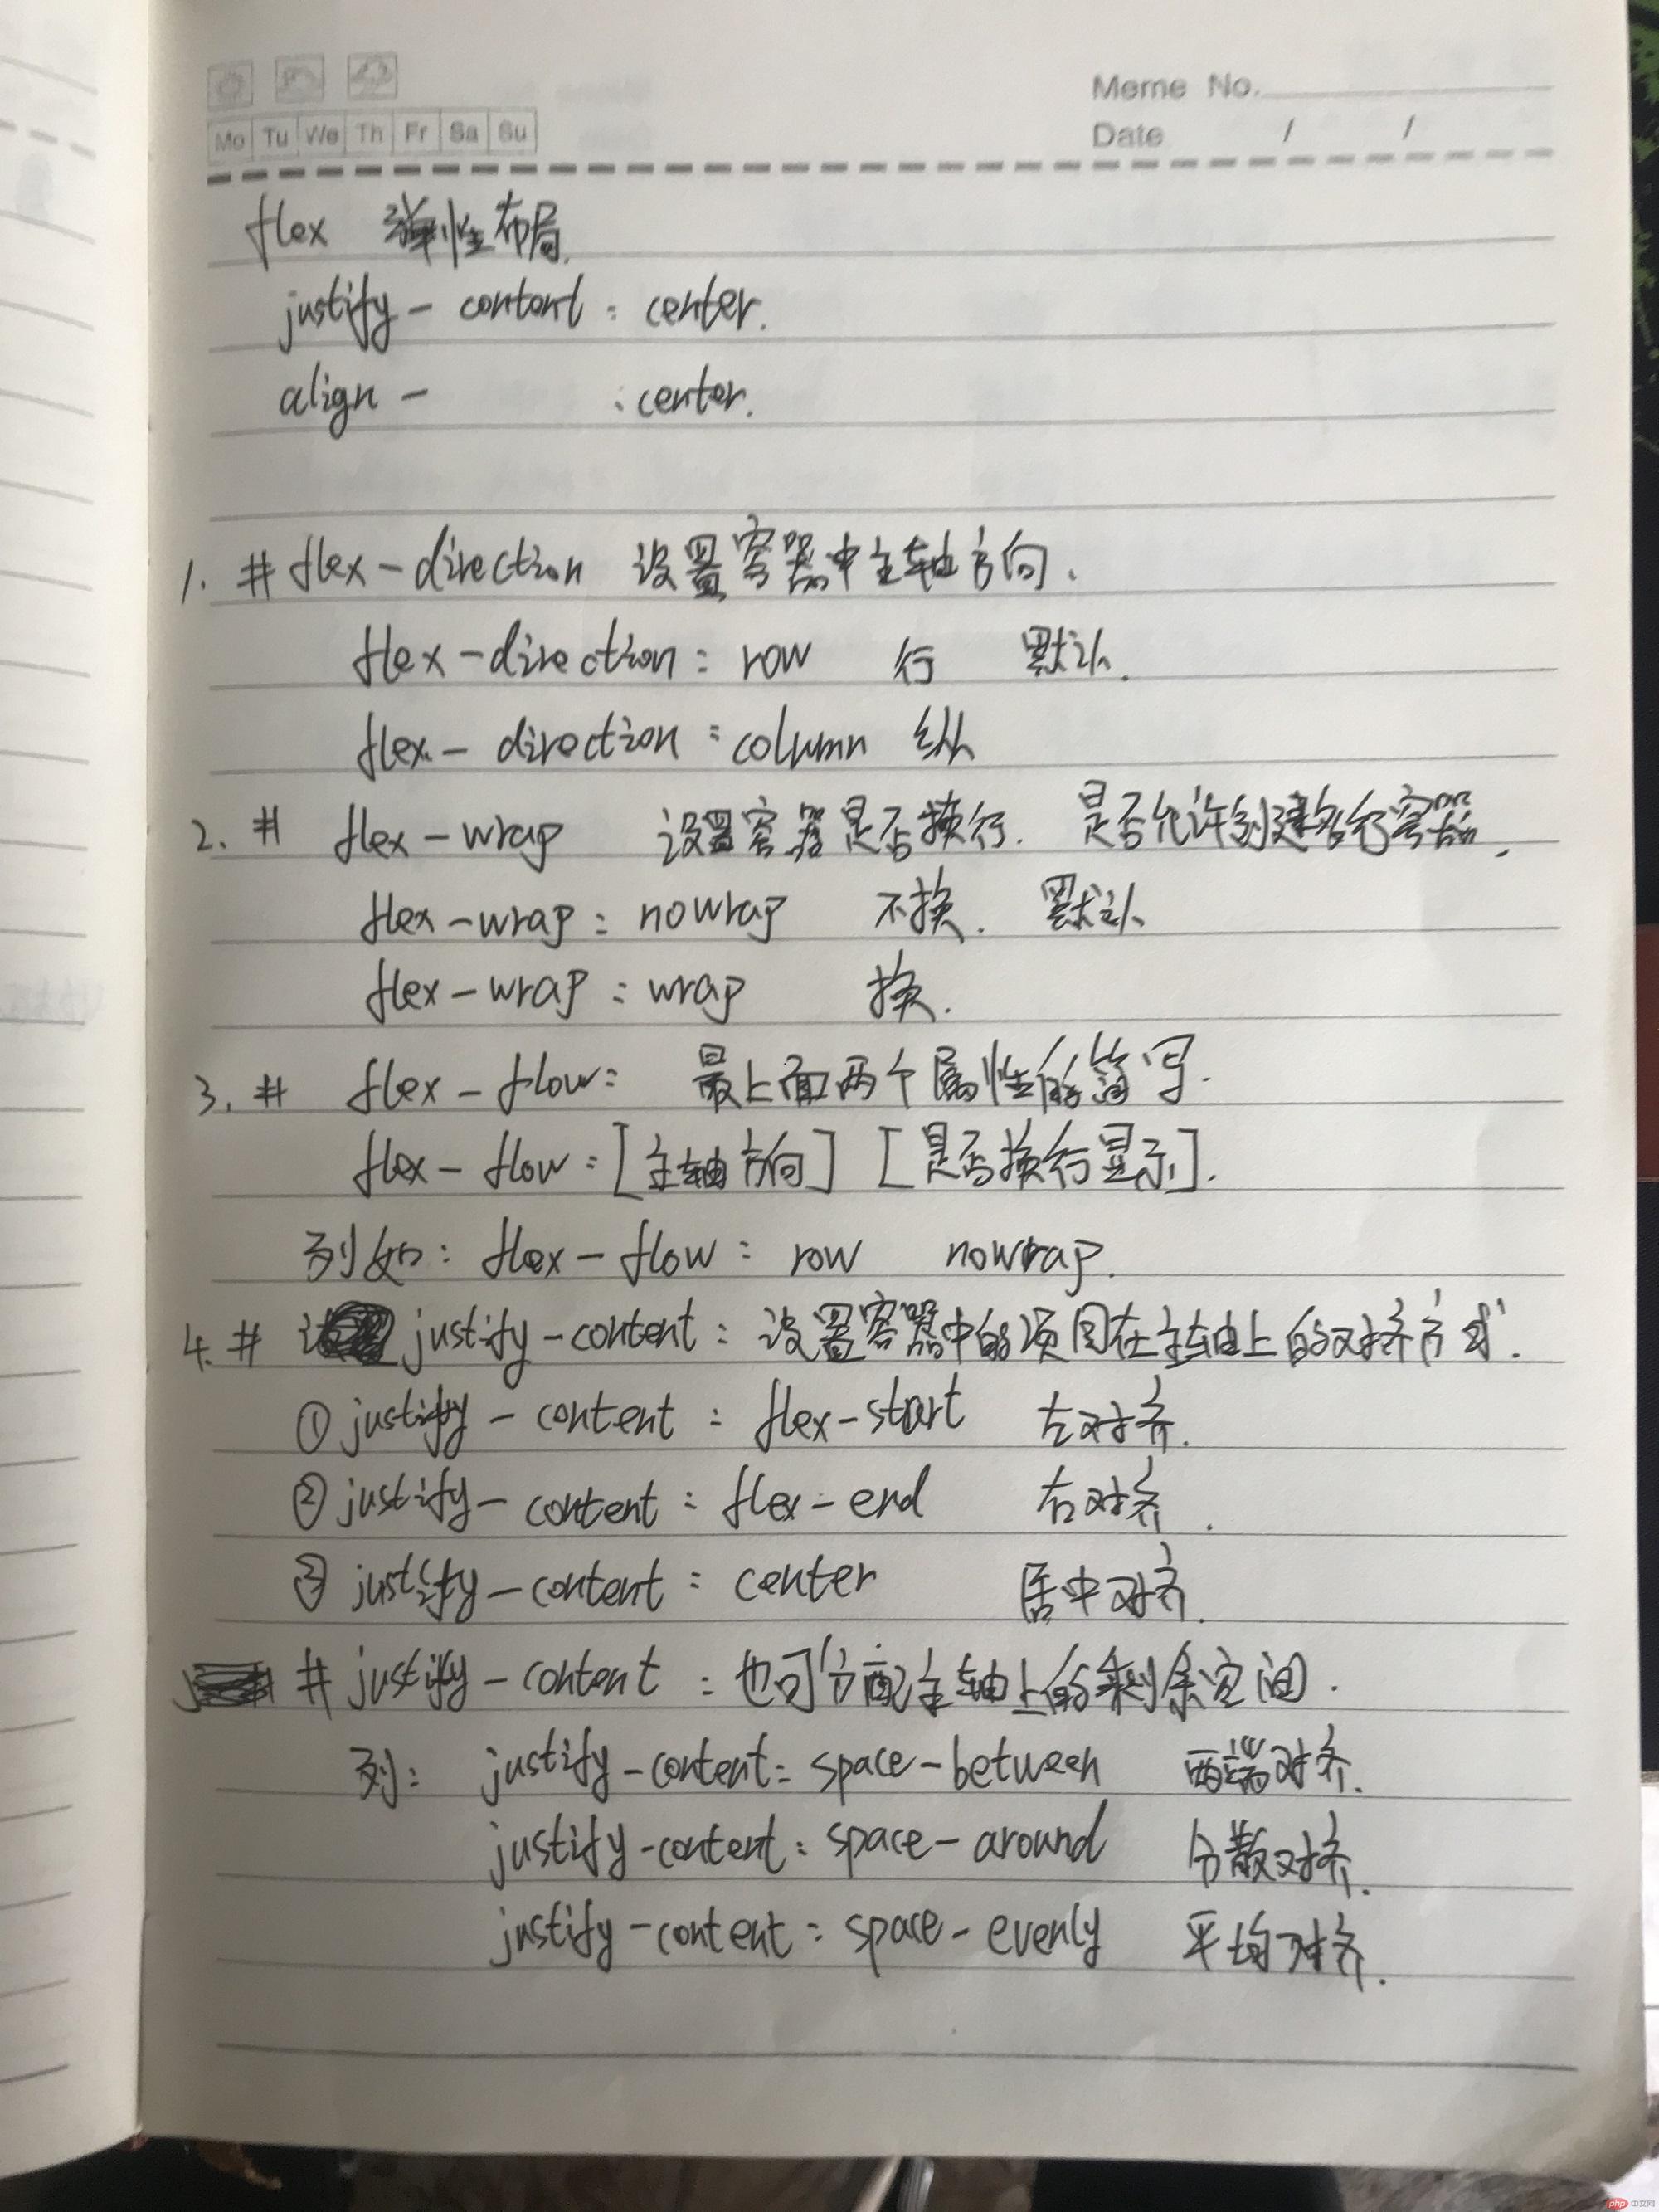 Meme No.
Mo Tu We Th Fr Sa Su
Date / /
flex 弹性布局.
justify-content : center.
align- : center.
1. # flex-direction 设置容器中主轴方向.
flex-direction : row 行 默认.
flex-direction : column 纵
2. # flex-wrap 设置容器是否换行. 是否允许创建多行容器.
flex-wrap : nowrap 不换. 默认
flex-wrap : wrap 换.
3. # flex-flow : 最上面两个属性的简写.
flex-flow : [主轴方向] [是否换行显示].
列如: flex-flow : row nowrap.
4. # justify-content : 设置容器中的项目在主轴上的对齐方式.
① justify-content : flex-start 左对齐.
② justify-content : flex-end 右对齐.
③ justify-content : center 居中对齐.
# justify-content : 也可分配主轴上的剩余空间.
列: justify-content : space-between 两端对齐.
justify-content : space-around 分散对齐.
justify-content : space-evenly 平均对齐.
php 中文网